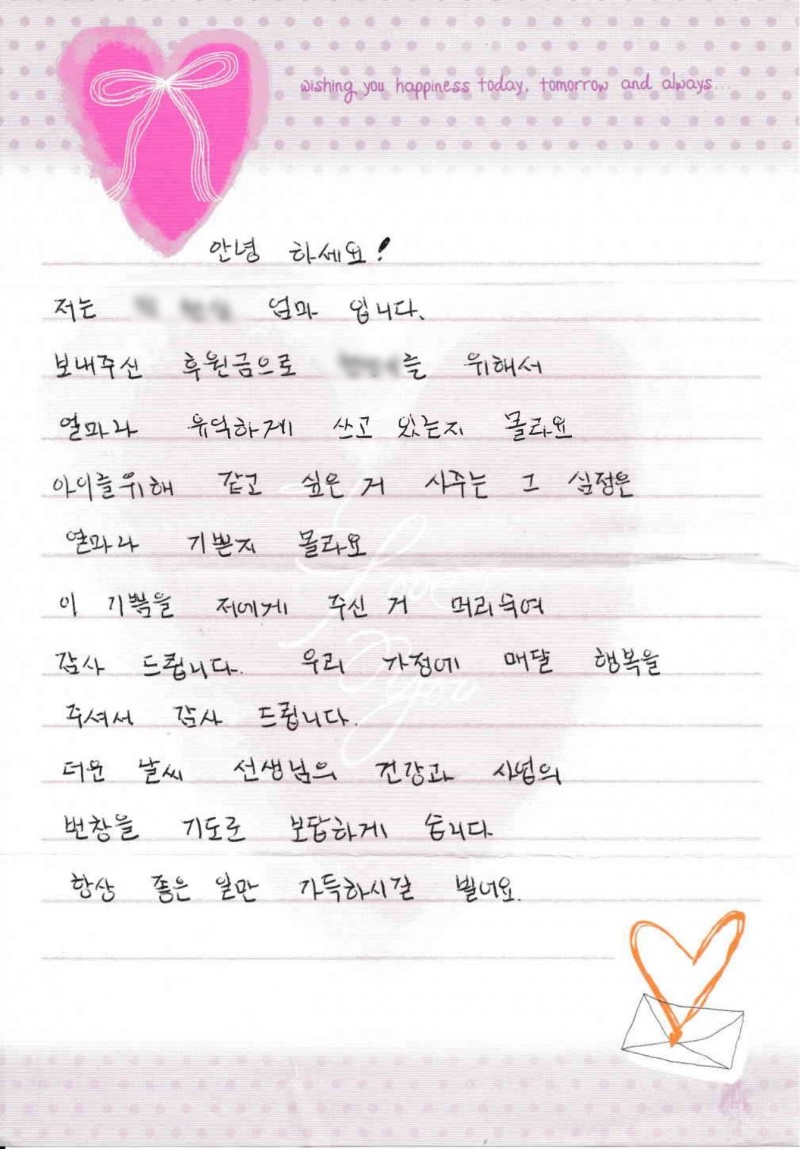 wishing you happiness today, tomorrow and always...
안녕 하세요!
저는 엄마 입니다.
보내주신 후원금으로 를 위해서
얼마나 유익하게 쓰고 있는지 몰라요
아이를위해 갖고 싶은 거 사주는 그 심정은
얼마나 기쁜지 몰라요
이 기쁨을 저에게 주신 거 머리숙여
감사 드립니다. 우리 가정에 매달 행복을
주셔서 감사 드립니다.
더운 날씨 선생님의 건강과 사업의
번창을 기도로 보답하게 습니다
항상 좋은 일만 가득하시길 빌어요.
Love
You